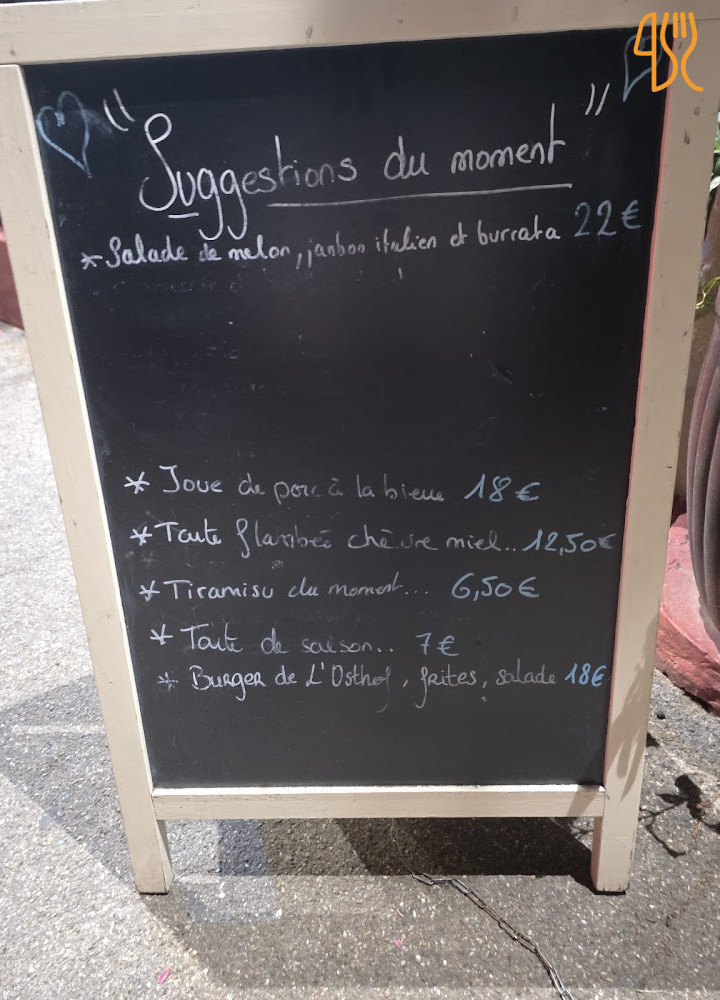 " Suggestions du moment "
* Salade de melon, jambon italien et burrata 22€
* Joue de porc à la bière 18€
* Tarte flambée chèvre miel.. 12,50€
* Tiramisu du moment... 6,50€
* Tarte de saison.. 7€
* Burger de L'Osthof, frites, salade 18€